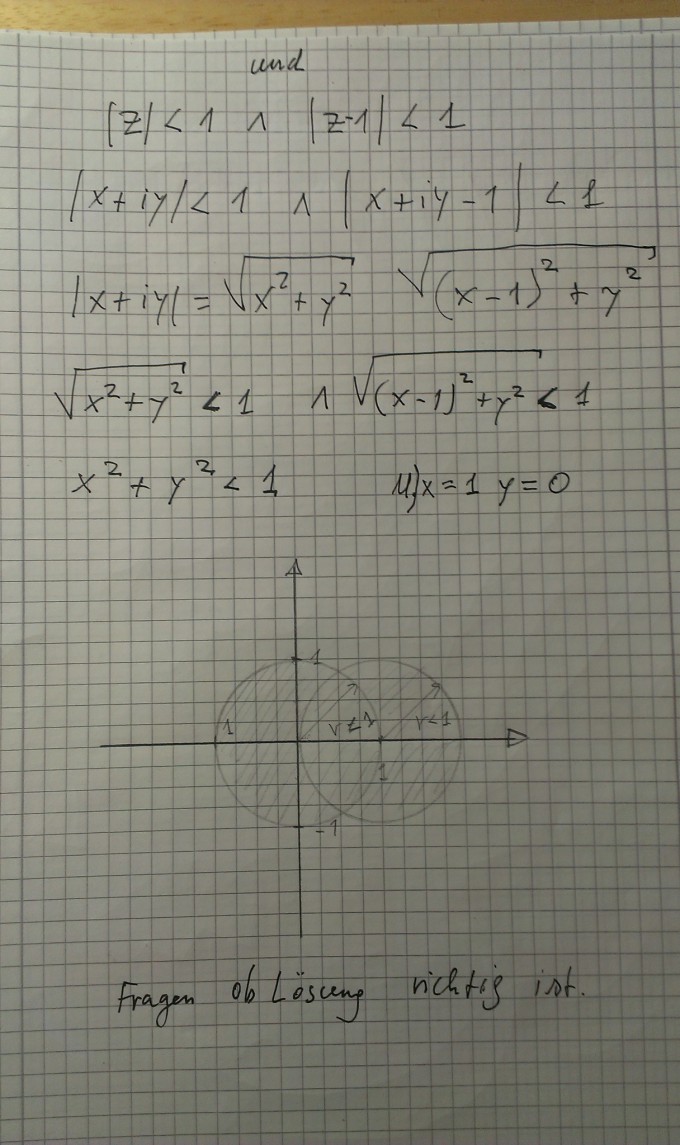 und
|z| < 1 ∧ |z-1| < 1
|x+iy| < 1 ∧ |x+iy-1| < 1
|x+iy| = √(x²+y²) √((x-1)²+y²)
√(x²+y²) < 1 ∧ √((x-1)²+y²) < 1
x²+y² < 1 x=1 y=0
1
1 r<1 r<1
1
-1
Fragen ob Lösung richtig ist.